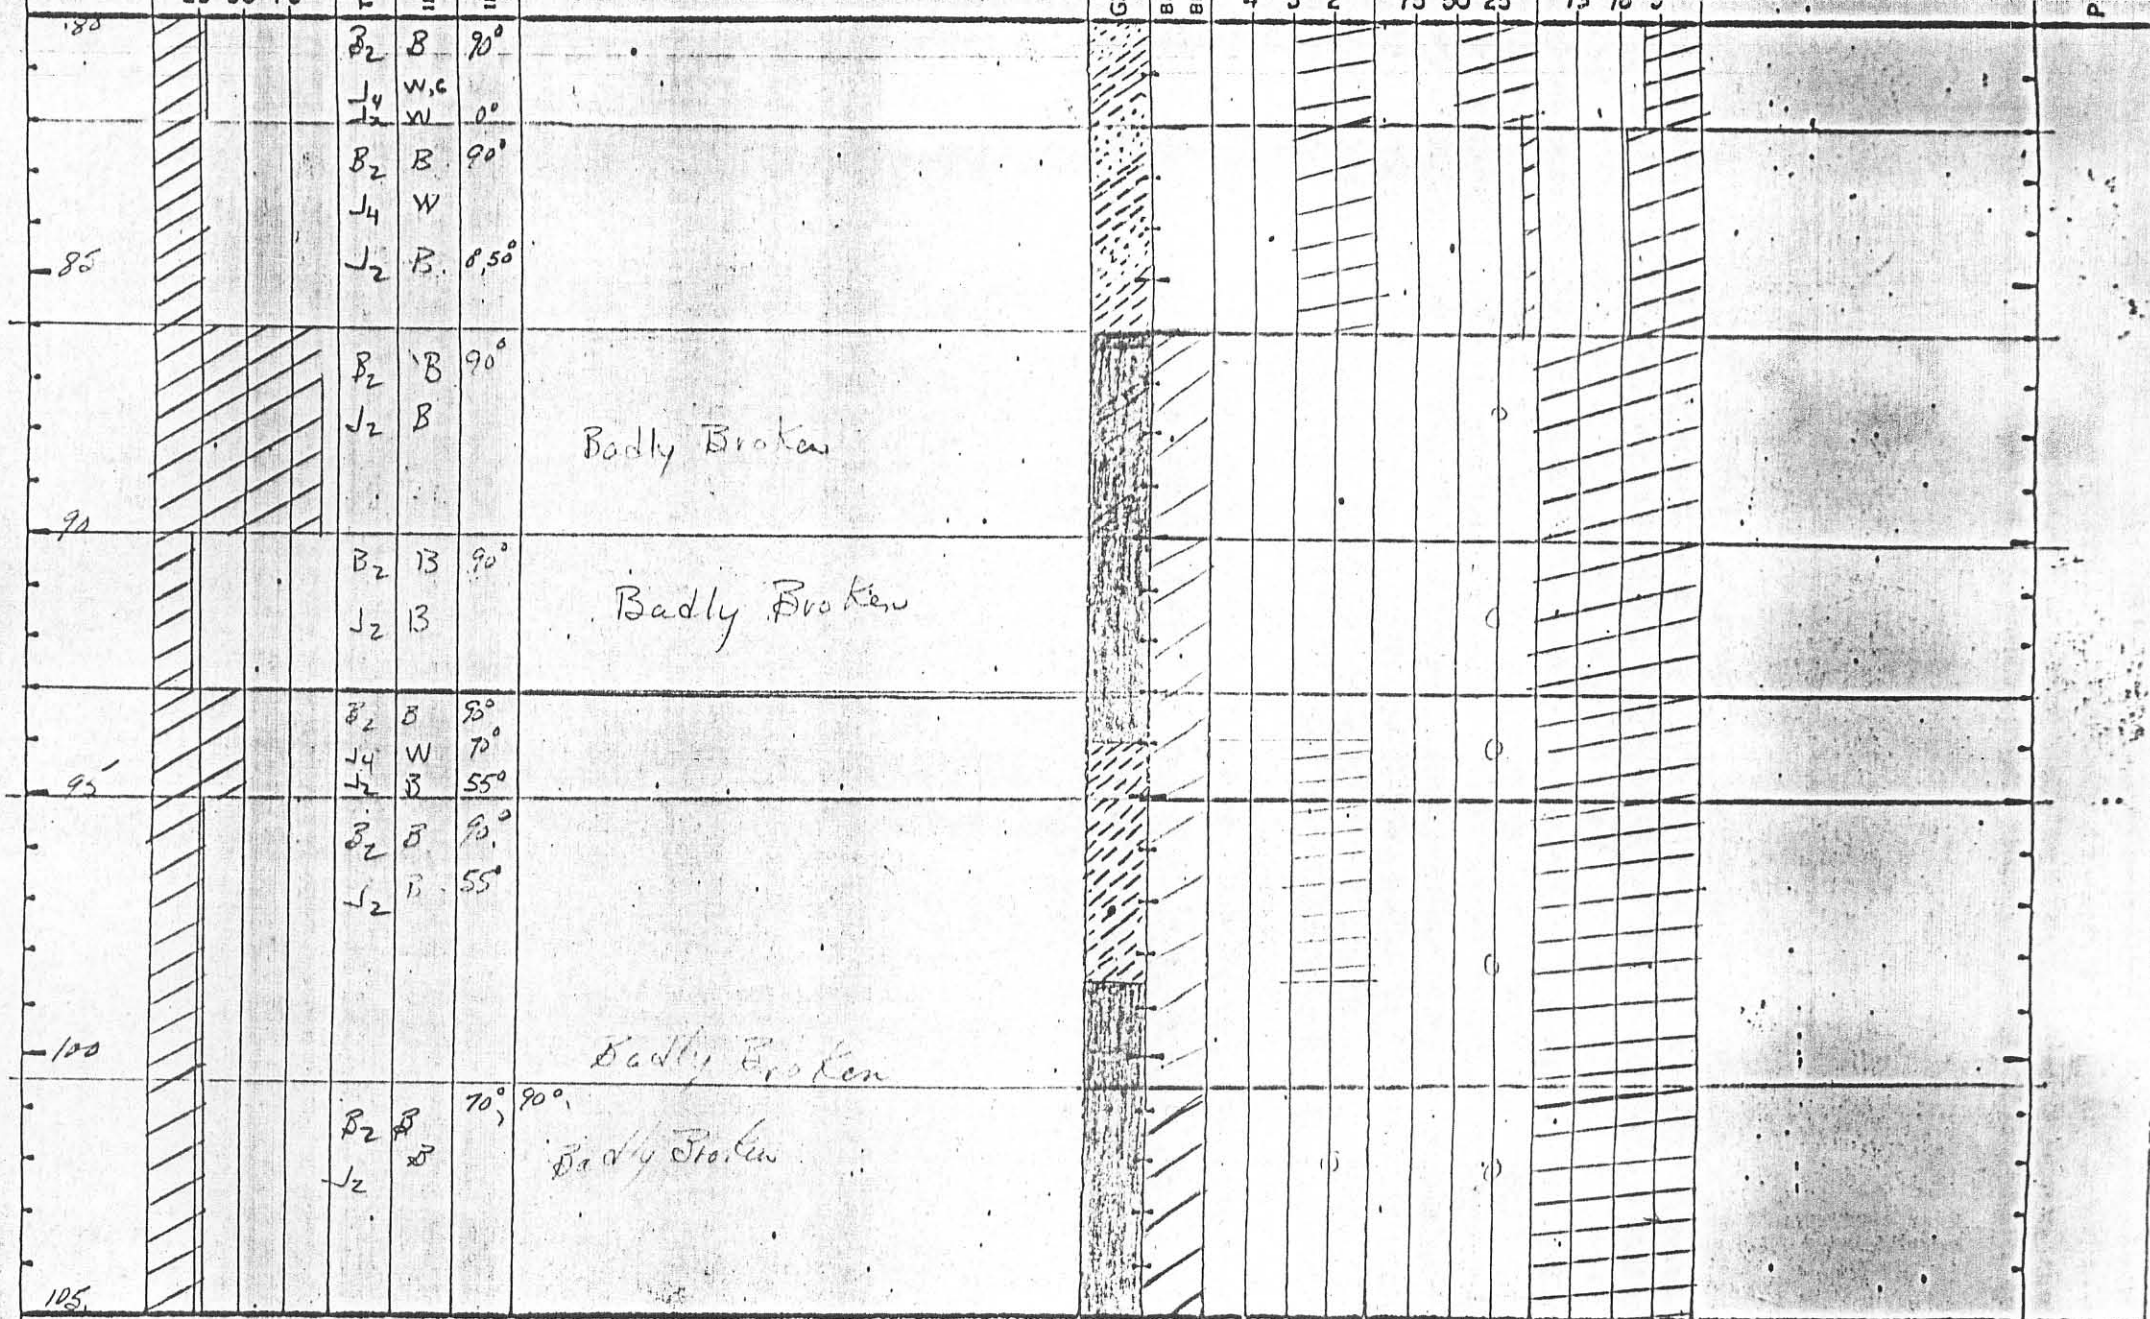 80
B2 B 90°
J4 W,C
J2 W 0°
B2 B 90°
J4 W
85 J2 B 0,50°
B2 B 90°
J2 B
Badly Broken
90
B2 B 90°
J2 B
Badly Broken
B2 B 90°
J4 W 70°
95 J2 B 55°
B2 B 90°
J2 B 55°
100
Badly Broken
70°, 90°
B2 B
Badly Broken
J2 B
105
G B B 4 3 2 75 50 25 75
P